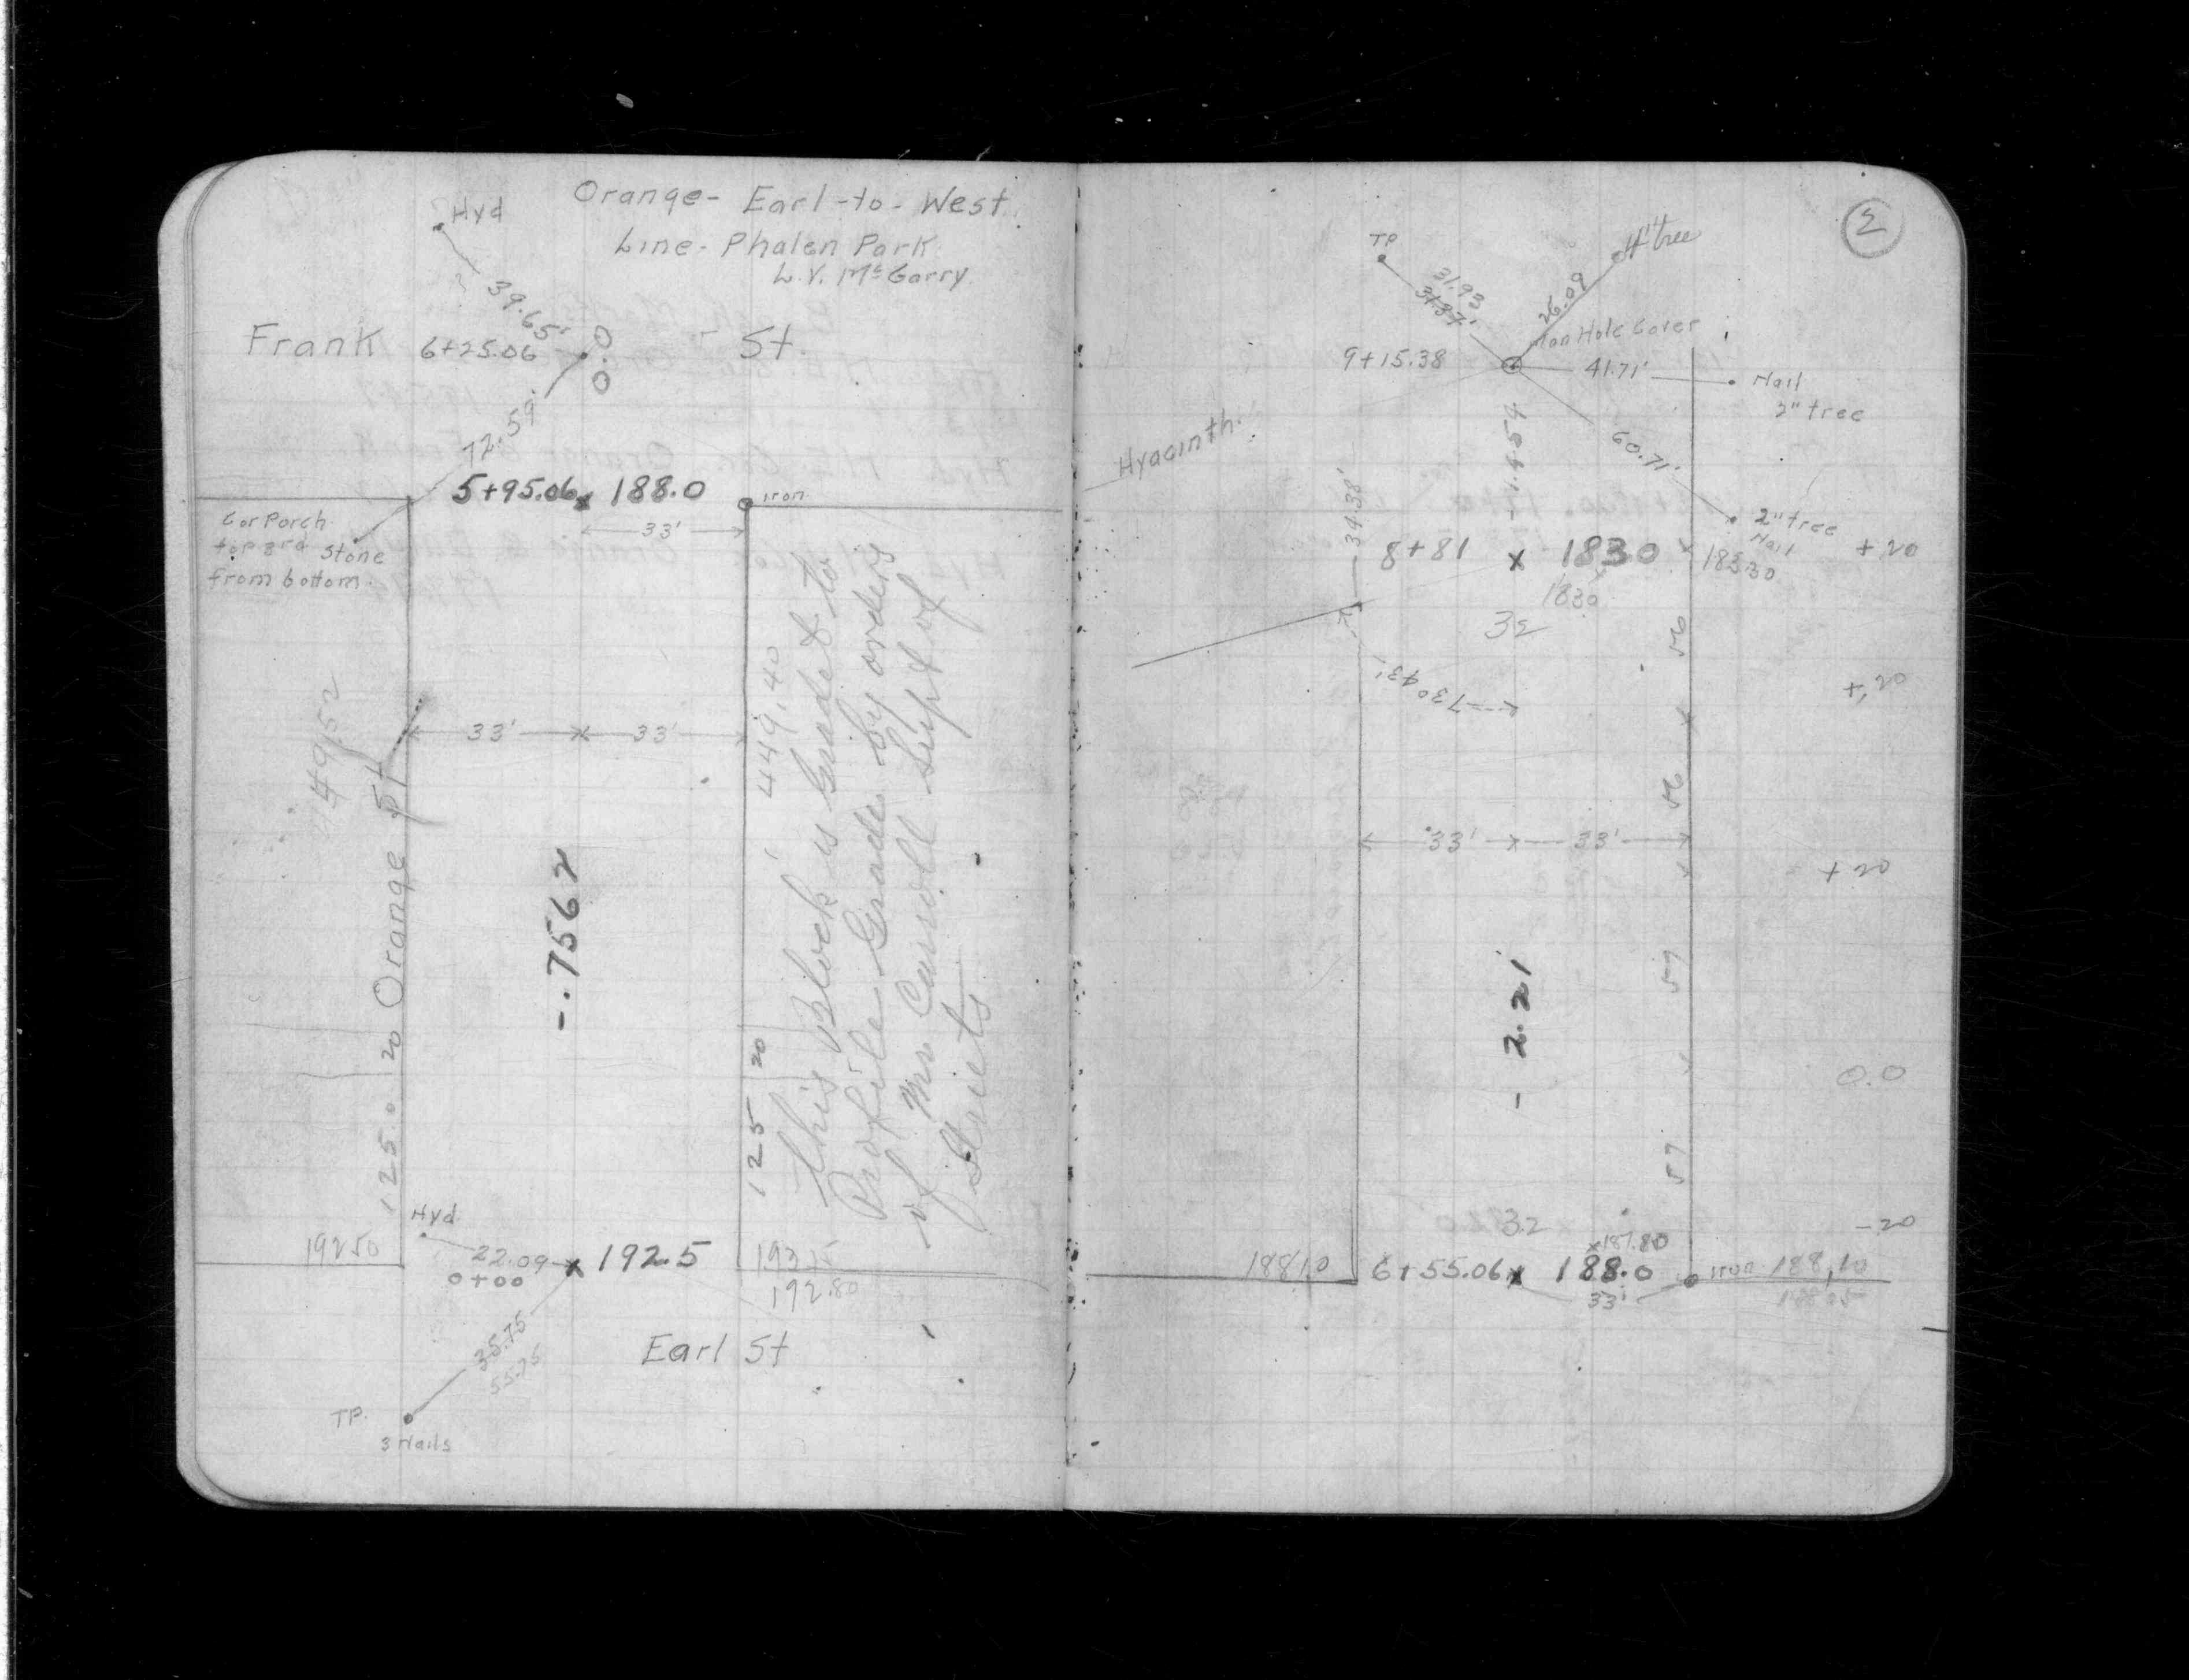 Orange - Earl - to - West
Line - Phalen Park
L.V. McGarry
Hyd
39.65'
Frank 6+25.06 St.
72.59'
5+95.06 x 188.0
Iron
33'
Cor Porch
top 3rd stone
from bottom.
33' 33'
449.52
449.40
Orange St
-.7562
This Block is Graded to
Profile Grade by orders
of Mr Carroll Supt of
Streets
125.0 20
125 20
Hyd
19250
22.09
0+00
x 192.5
192.80
35.75
55.75
Earl St
TP.
3 Nails
2
TP
4" tree
31.93
31.87'
26.09
Man Hole Cover
9+15.38
41.71'
Nail
2" tree
Hyacinth
60.71'
34.38'
2" tree
Nail
8+81 x 1830
18330
+20
1830
32
56
73° 43'
+.20
56
33' 33'
+20
57
-2.21
0.0
57
32
-20
x187.80
18810
6+55.06 x 188.0
Iron 188.10
33'